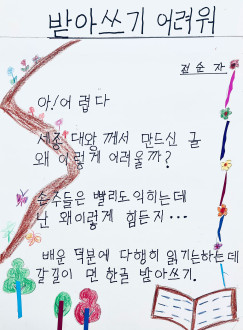 받아쓰기 어려워
전순자
아! 어렵다
세종 대왕 께서 만드신 글
왜 이렇게 어려울까?
손주들은 빨리도 익히는데
난 왜이렇게 힘든지···
배운 덕분에 다행히 읽기는하는데
갈길이 먼 한글 받아쓰기.